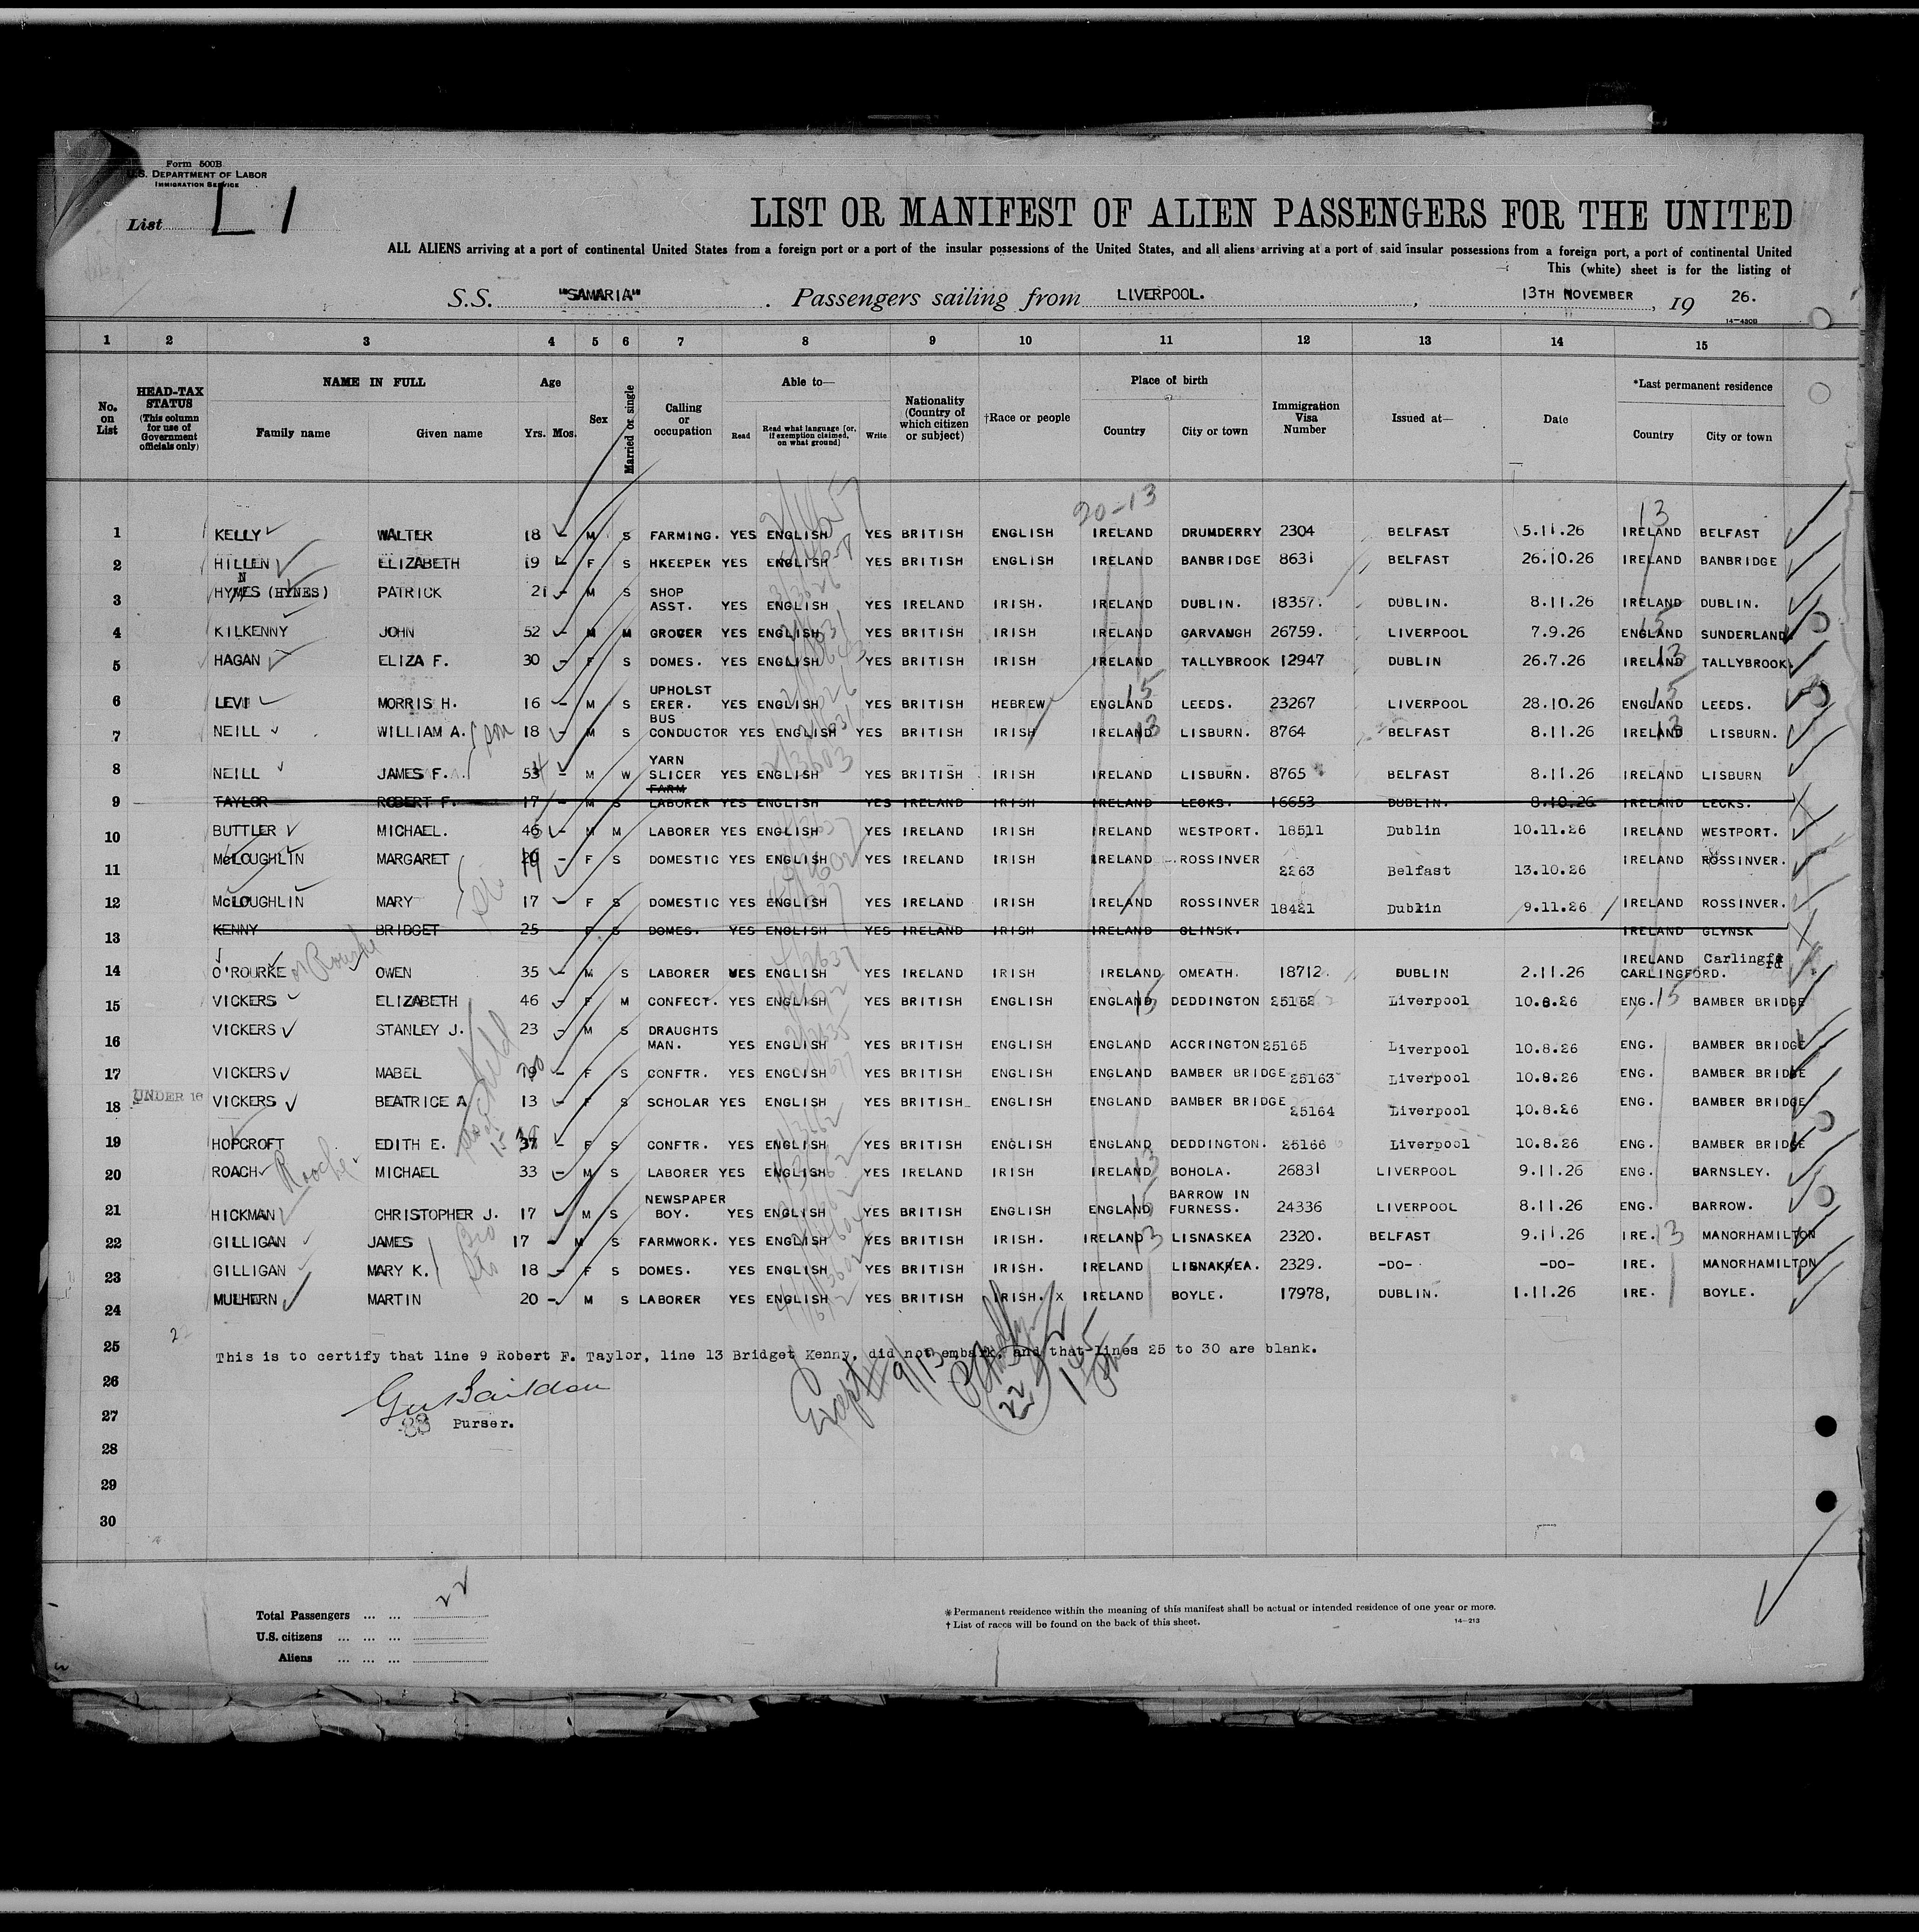 Form 500B
U.S. DEPARTMENT OF LABOR
IMMIGRATION SERVICE
List L 1
LIST OR MANIFEST OF ALIEN PASSENGERS FOR THE UNITED
ALL ALIENS arriving at a port of continental United States from a foreign port or a port of the insular possessions of the United States, and all aliens arriving at a port of said insular possessions from a foreign port, a port of continental United
This (white) sheet is for the listing of
S.S. "SAMARIA" . Passengers sailing from LIVERPOOL. , 13TH NOVEMBER , 19 26.
14-430B
1 2 3 4 5 6 7 8 9 10 11 12 13 14 15
No. on List HEAD-TAX STATUS (This column for use of Government officials only) NAME IN FULL Family name Given name Age Yrs. Mos. Sex Married or single Calling or occupation Able to— Read Read what language [or, if exemption claimed, on what ground] Write Nationality (Country of which citizen or subject) †Race or people Place of birth Country City or town Immigration Visa Number Issued at— Date *Last permanent residence Country City or town
20-13 13
1 KELLY WALTER 18 - M S FARMING. YES ENGLISH YES BRITISH ENGLISH IRELAND DRUMDERRY 2304 BELFAST 5.11.26 IRELAND BELFAST
2 HILLEN ELIZABETH 19 - F S HKEEPER YES ENGLISH YES BRITISH ENGLISH IRELAND BANBRIDGE 8631 BELFAST 26.10.26 IRELAND BANBRIDGE
N
3 HYMES (HYNES) PATRICK 21 - M S SHOP ASST. YES ENGLISH YES IRELAND IRISH. IRELAND DUBLIN. 18357. DUBLIN. 8.11.26 IRELAND DUBLIN.
4 KILKENNY JOHN 52 - M M GROCER YES ENGLISH YES BRITISH IRISH IRELAND GARVAUGH 26759. LIVERPOOL 7.9.26 ENGLAND 15 SUNDERLAND
5 HAGAN ELIZA F. 30 - F S DOMES. YES ENGLISH YES BRITISH IRISH IRELAND TALLYBROOK 12947 DUBLIN 26.7.26 IRELAND 13 TALLYBROOK.
6 LEVI MORRIS H. 16 - M S UPHOLST ERER. YES ENGLISH YES BRITISH HEBREW ENGLAND 15 LEEDS. 23267 LIVERPOOL 28.10.26 ENGLAND 15 LEEDS.
7 NEILL WILLIAM A. son 18 - M S BUS CONDUCTOR YES ENGLISH YES BRITISH IRISH IRELAND 13 LISBURN. 8764 BELFAST 8.11.26 IRELAND 13 LISBURN.
8 NEILL JAMES F. 53 - M W YARN SLICER YES ENGLISH YES BRITISH IRISH IRELAND LISBURN. 8765 BELFAST 8.11.26 IRELAND LISBURN
9 TAYLOR ROBERT F. 17 - M S FARM LABORER YES ENGLISH YES IRELAND IRISH IRELAND LECKS. 16653 DUBLIN. 8.10.26 IRELAND LECKS.
10 BUTTLER MICHAEL. 46 - M M LABORER YES ENGLISH YES IRELAND IRISH IRELAND WESTPORT. 18511 Dublin 10.11.26 IRELAND WESTPORT.
11 McLOUGHLIN MARGARET 19 - F S DOMESTIC YES ENGLISH YES IRELAND IRISH IRELAND ROSSINVER 2263 Belfast 13.10.26 IRELAND ROSSINVER.
12 McLOUGHLIN MARY 17 - F S DOMESTIC YES ENGLISH YES IRELAND IRISH IRELAND ROSSINVER 18421 Dublin 9.11.26 IRELAND ROSSINVER.
13 KENNY BRIDGET 25 F S DOMES. YES ENGLISH YES IRELAND IRISH IRELAND GLINSK. IRELAND GLYNSK
14 O'ROURKE or Rourke OWEN 35 - M S LABORER YES ENGLISH YES IRELAND IRISH IRELAND OMEATH. 18712 DUBLIN 2.11.26 IRELAND Carlingf rd CARLINGFORD.
15 VICKERS ELIZABETH 46 - F M CONFECT. YES ENGLISH YES BRITISH ENGLISH ENGLAND 15 DEDDINGTON 25162 Liverpool 10.8.26 ENG. 15 BAMBER BRIDGE
16 VICKERS STANLEY J. 23 - M S DRAUGHTS MAN. YES ENGLISH YES BRITISH ENGLISH ENGLAND ACCRINGTON 25165 Liverpool 10.8.26 ENG. BAMBER BRIDGE
17 VICKERS MABEL 20 - F S CONFTR. YES ENGLISH YES BRITISH ENGLISH ENGLAND BAMBER BRIDGE 25163 Liverpool 10.8.26 ENG. BAMBER BRIDGE
18 UNDER 16 VICKERS BEATRICE A 13 - F S SCHOLAR YES ENGLISH YES BRITISH ENGLISH ENGLAND BAMBER BRIDGE 25164 Liverpool 10.8.26 ENG. BAMBER BRIDGE
19 HOPCROFT EDITH E. 37 - F S CONFTR. YES ENGLISH YES BRITISH ENGLISH ENGLAND DEDDINGTON. 25166 Liverpool 10.8.26 ENG. BAMBER BRIDGE
20 ROACH Roache MICHAEL 33 - M S LABORER YES ENGLISH YES IRELAND IRISH IRELAND 13 BOHOLA. 26831 LIVERPOOL 9.11.26 ENG. BARNSLEY.
21 HICKMAN CHRISTOPHER J. 17 - M S NEWSPAPER BOY. YES ENGLISH YES BRITISH ENGLISH ENGLAND 15 BARROW IN FURNESS. 24336 LIVERPOOL 8.11.26 ENG. BARROW.
22 GILLIGAN JAMES Bro 17 - M S FARMWORK. YES ENGLISH YES BRITISH IRISH. IRELAND 13 LISNASKEA 2320. BELFAST 9.11.26 IRE. 13 MANORHAMILTON
23 GILLIGAN MARY K. sis 18 - F S DOMES. YES ENGLISH YES BRITISH IRISH. IRELAND LISNAKREA. 2329. -DO- -DO- IRE. MANORHAMILTON
24 MULHERN MARTIN 20 - M S LABORER YES ENGLISH YES BRITISH IRISH. X IRELAND BOYLE. 17978, DUBLIN. 1.11.26 IRE. BOYLE.
25 This is to certify that line 9 Robert F. Taylor, line 13 Bridget Kenny, did not embark, and that lines 25 to 30 are blank.
26
27 Purser.
28
29
30
Total Passengers ... ... 22
U.S. citizens ... ... ...
Aliens ... ... ...
* Permanent residence within the meaning of this manifest shall be actual or intended residence of one year or more.
† List of races will be found on the back of this sheet.
14-213